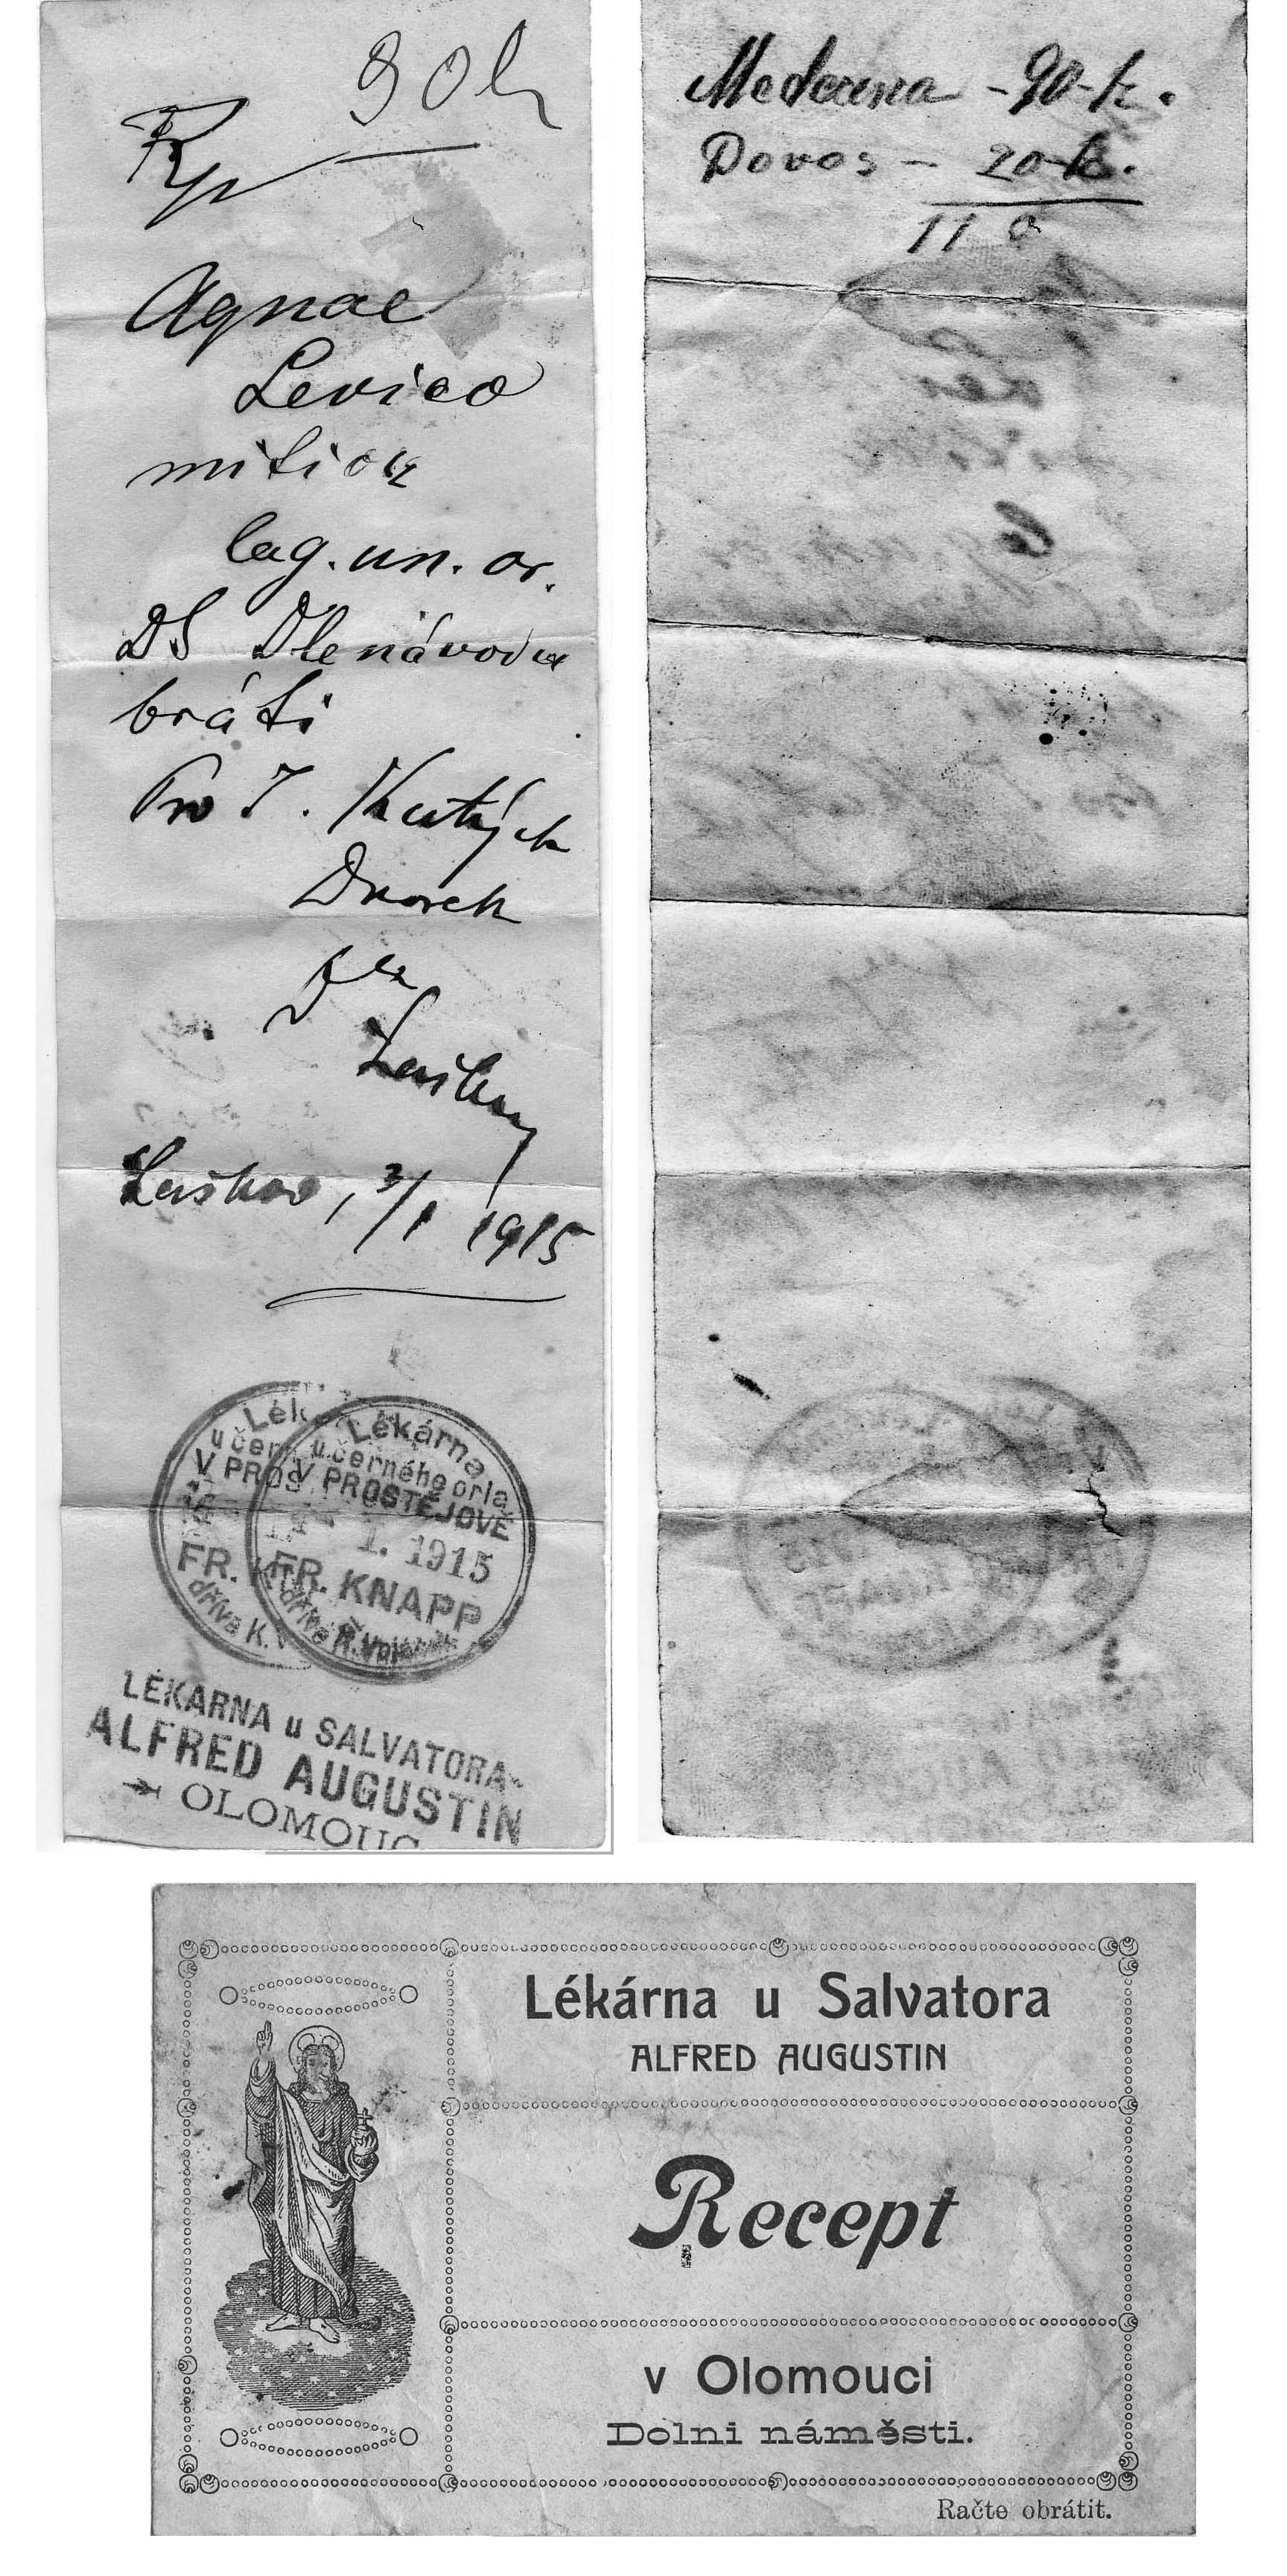 90 h
Rp
Aquae
Levico
mitior
lag. un. or.
DS Dle návodu
bráti
Pro J.
Dvorek
Dr
Laškov, 3/1 1915
Lékárna
u černého orla
V PROSTĚJOVĚ
1. 1915
FR. KNAPP
dříve K.
Lék
u čer
V PROS
FR.
dříve K. V
LÉKÁRNA u SALVATORA
ALFRED AUGUSTIN
OLOMOUC
Medecina - 90 - h.
Dovos - 20 - h.
110
Lékárna u Salvatora
ALFRED AUGUSTIN
Recept
v Olomouci
Dolni náměsti.
Račte obrátit.